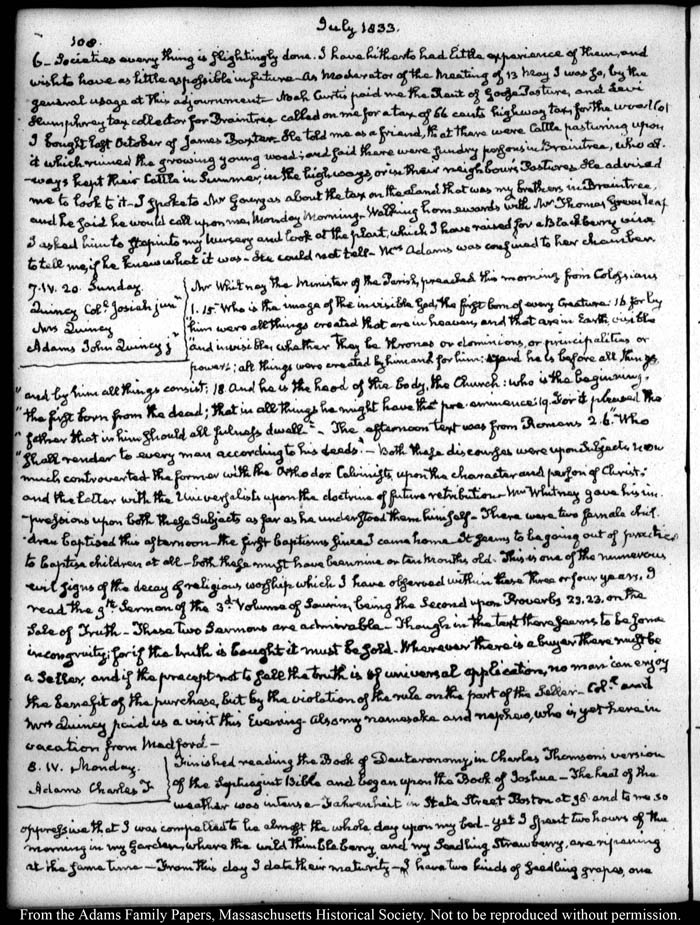 July 1833.
108.
6 - Societies every thing is slightingly done. I have hitherto had little experience of them, and
wish to have as little as possible in future - As Moderator of the Meeting of 13 May I was so, by the
general usage at this adjournment - Noah Curtis paid me the Rent of Pasture, and Levi
Humphrey tax collector for Braintree called on me for a tax of 66 cents highway tax, for the wood lot
I bought last October of James Baxter - He told me as a friend, that there were Cattle pasturing upon
it which ruined the growing young wood; and said there were sundry persons in Braintree, who al-
-ways kept their Cattle in Summer, in the high ways, or in their neighbours Pastures. He advised
me to look to it - I spoke to Mr Gourgas about the tax on the Land that was my brothers in Braintree,
and he said he would call upon me, Monday Morning. Walking homewards with Mr Thomas Greenleaf
I asked him to step into my nursery and look at the plant, which I have raised for a Blackberry vine
to tell me, if he knew what it was - He could not tell - Mrs Adams was confined to her chamber
7. IV. 20. Sunday.
Quincy Col.l Josiah junr
Mrs Quincy
Adams John Quincy jr
Mr Whitney the Minister of the Parish, preached this morning from Colossians
1. 15 "Who is the image of the invisible God, the first born of every Creature: 16 for by
him were all things created that are in heaven, and that are in Earth, visible
and invisible, whether they be thrones or dominions, or principalities or
powers; all things were created by him and for him: 17 and he is before all things
" and by him all things consist: 18 And he is the head of the body, the Church: who is the beginning,
" the first born from the dead; that in all things he might have the pre-eminence: 19. For it pleased the
" father that in him should all fulness dwell" - The afternoon text was from Romans 2. 6. "Who
" shall render to every man according to his deeds" - Both these discourses were upon Subjects now
much controverted the former with the Orthodox Calvinists, upon the character and person of Christ;
and the latter with the Universalists upon the doctrine of future retribution - Mr Whitney gave his im-
-pressions upon both these Subjects as far as he understood them himself - There were two female chil-
-dren baptised this afternoon - the first baptisms since I came home - It seems to be going out of practice
to baptise children at all - both these must have been nine or ten months old. This is one of the numerous
evil signs of the decay of religious worship which I have observed within these three or four years. I
read the 9th Sermon of the 3d Volume of Saurin, being the Second upon Proverbs 23. 23. on the
Sale of Truth - These two Sermons are admirable - Though in the text there seems to be some
incongruity; for if the truth is bought it must be sold - Wherever there is a buyer there must be
a Seller, and if the precept not to sell the truth is of universal application, no man can enjoy
the benefit of the purchase, but by the violation of the rule on the part of the Seller - Col.l and
Mrs Quincy paid us a visit this Evening - Also my namesake and nephew, who is yet here in
vacation from Medford -
8. IV. Monday.
Adams Charles F.
Finished reading the Book of Deuteronomy, in Charles Thomson's version
of the Septuagint Bible and began upon the Book of Joshua - The heat of the
weather was intense - Fahrenheit in State Street Boston at 96 and to me so
oppressive that I was compelled to lie almost the whole day upon my bed - yet I spent two hours of the
morning in my Garden, where the wild thimble berry and my Seedling Strawberry, are ripening
at the same time - From this day I date their maturity - I have two kinds of seedling grapes, one
From the Adams Family Papers, Massachusetts Historical Society. Not to be reproduced without permission.